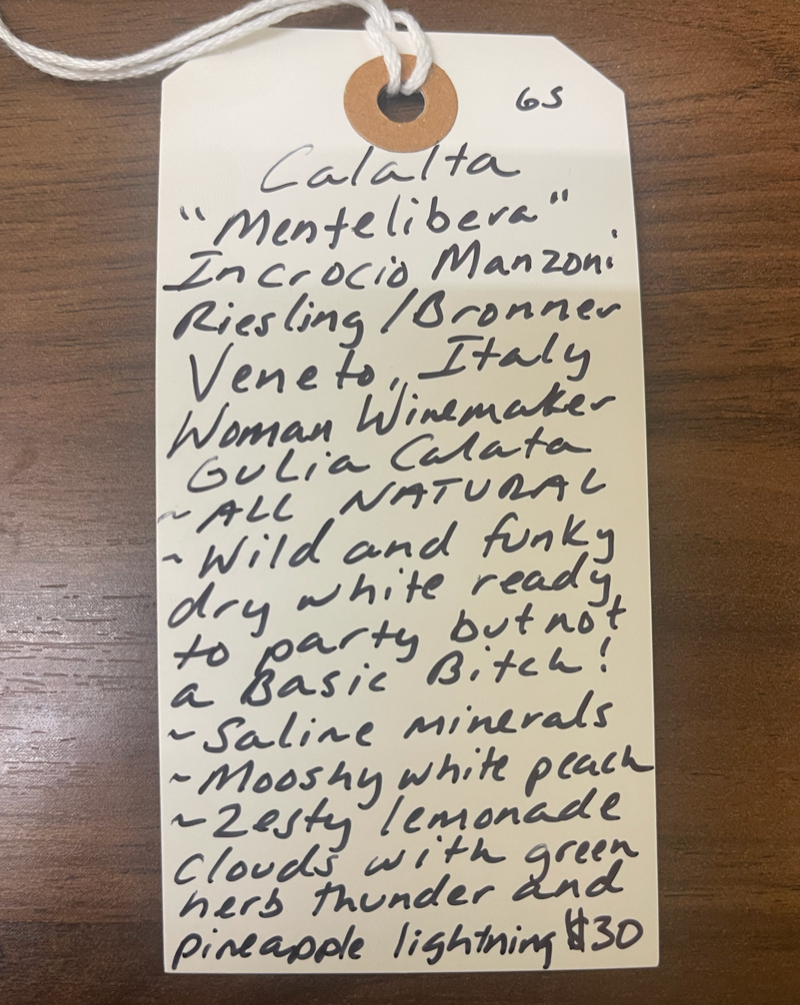 GS
Calalta
"Mentelibera"
Incrocio Manzoni
Riesling/Bronner
Veneto, Italy
Woman Winemaker
Gulia Calata
~ALL NATURAL
~Wild and funky
dry white ready
to party but not
a Basic Bitch!
~Saline minerals
~Mooshy white peach
~Zesty lemonade
clouds with green
herb thunder and
pineapple lightning $30